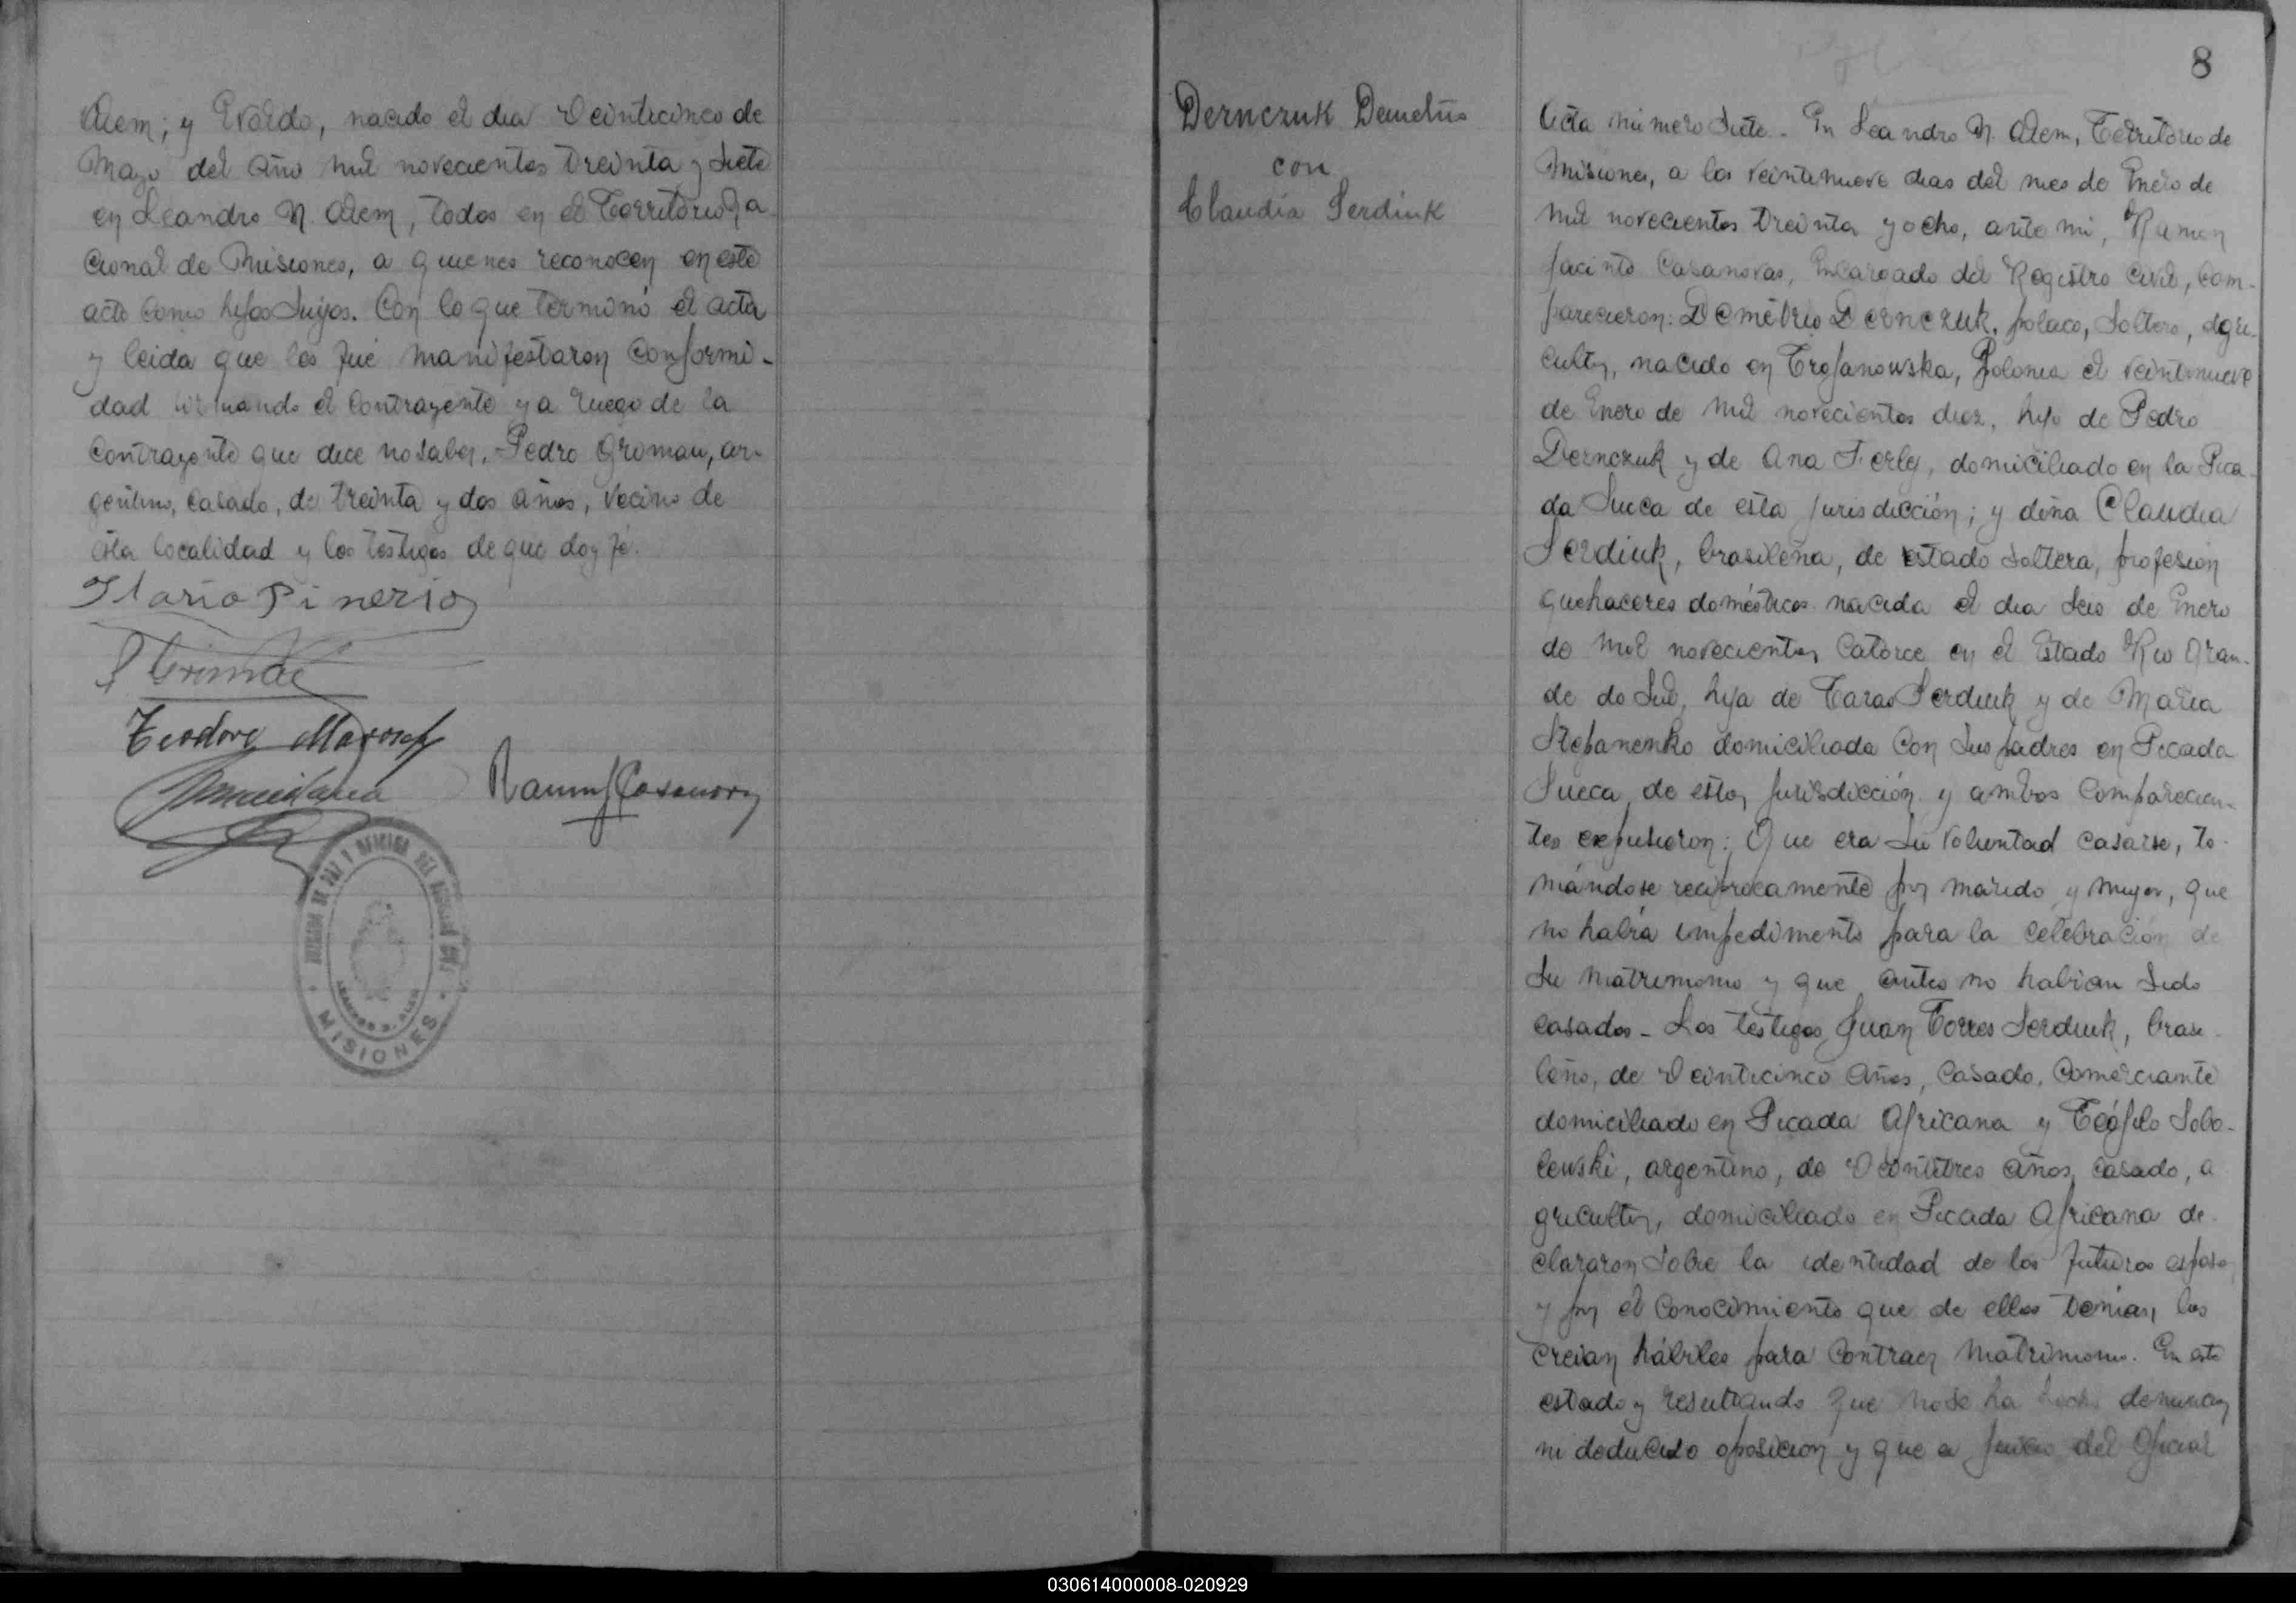 Alem; y Evaldo, nacido el dia Veinticinco de
Mayo del año mil novecientos treinta y siete
en Leandro N. Alem, todos en el Territorio Na
cional de Misiones, a quienes reconocen en este
acto como hijos suyos. Con lo que terminó el acta
y leida que les fué manifestaron conformi-
dad firmando el contrayente y a ruego de la
contrayente que dice no saber, Pedro Griman, ar-
gentino, casado, de treinta y dos años, vecino de
esta localidad y los testigos de que doy fé.
Ilario Pinerio
Teodoro
Ramon J Casanova
MISIONES
8
Dernczuk Demetrio
con
Claudia Serdiuk
Acta número siete. - En Leandro N. Alem, Territorio de
Misiones, a los veintinueve dias del mes de Enero de
mil novecientos treinta y ocho, ante mi, Ramon
Jacinto Casanovas, Encargado del Registro Civil, com-
parecieron: Demétrio Dernczuk, polaco, soltero, agri-
cultor, nacido en Trojanowska, Polonia el veintinueve
de Enero de mil novecientos diez, hijo de Pedro
Dernczuk y de Ana Ferley, domiciliado en la Pica-
da Sueca de esta jurisdicción; y doña Claudia
Serdiuk, brasileña, de estado soltera, profesion
quehaceres domésticos nacida el dia seis de Enero
de mil novecientos catorce en el Estado Rio Gran-
de do Sud, hija de Taras Serdiuk y de Maria
Stepanenko domiciliada con sus padres en Picada
Sueca de esta jurisdicción y ambos comparecien-
tes expusieron: Que era su voluntad casarse, to-
mándose reciprocamente por marido y mujer, que
no habia impedimento para la celebración de
su matrimonio y que antes no habian sido
casados - Los testigos Juan Torres Serdiuk, brasi-
leño, de veinticinco años, casado, comerciante
domiciliado en Picada Africana y Teófilo Sobo-
lewski, argentino, de veintitres años, casado, a
gricultor, domiciliado en Picada Africana de-
clararon sobre la identidad de los futuros esposos
y por el conocimiento que de ellos tenian, los
creian hábiles para contraer matrimonio. En este
estado y resultando que no se ha hecho denuncia
ni deducido oposicion y que a juicio del Oficial
030614000008-020929